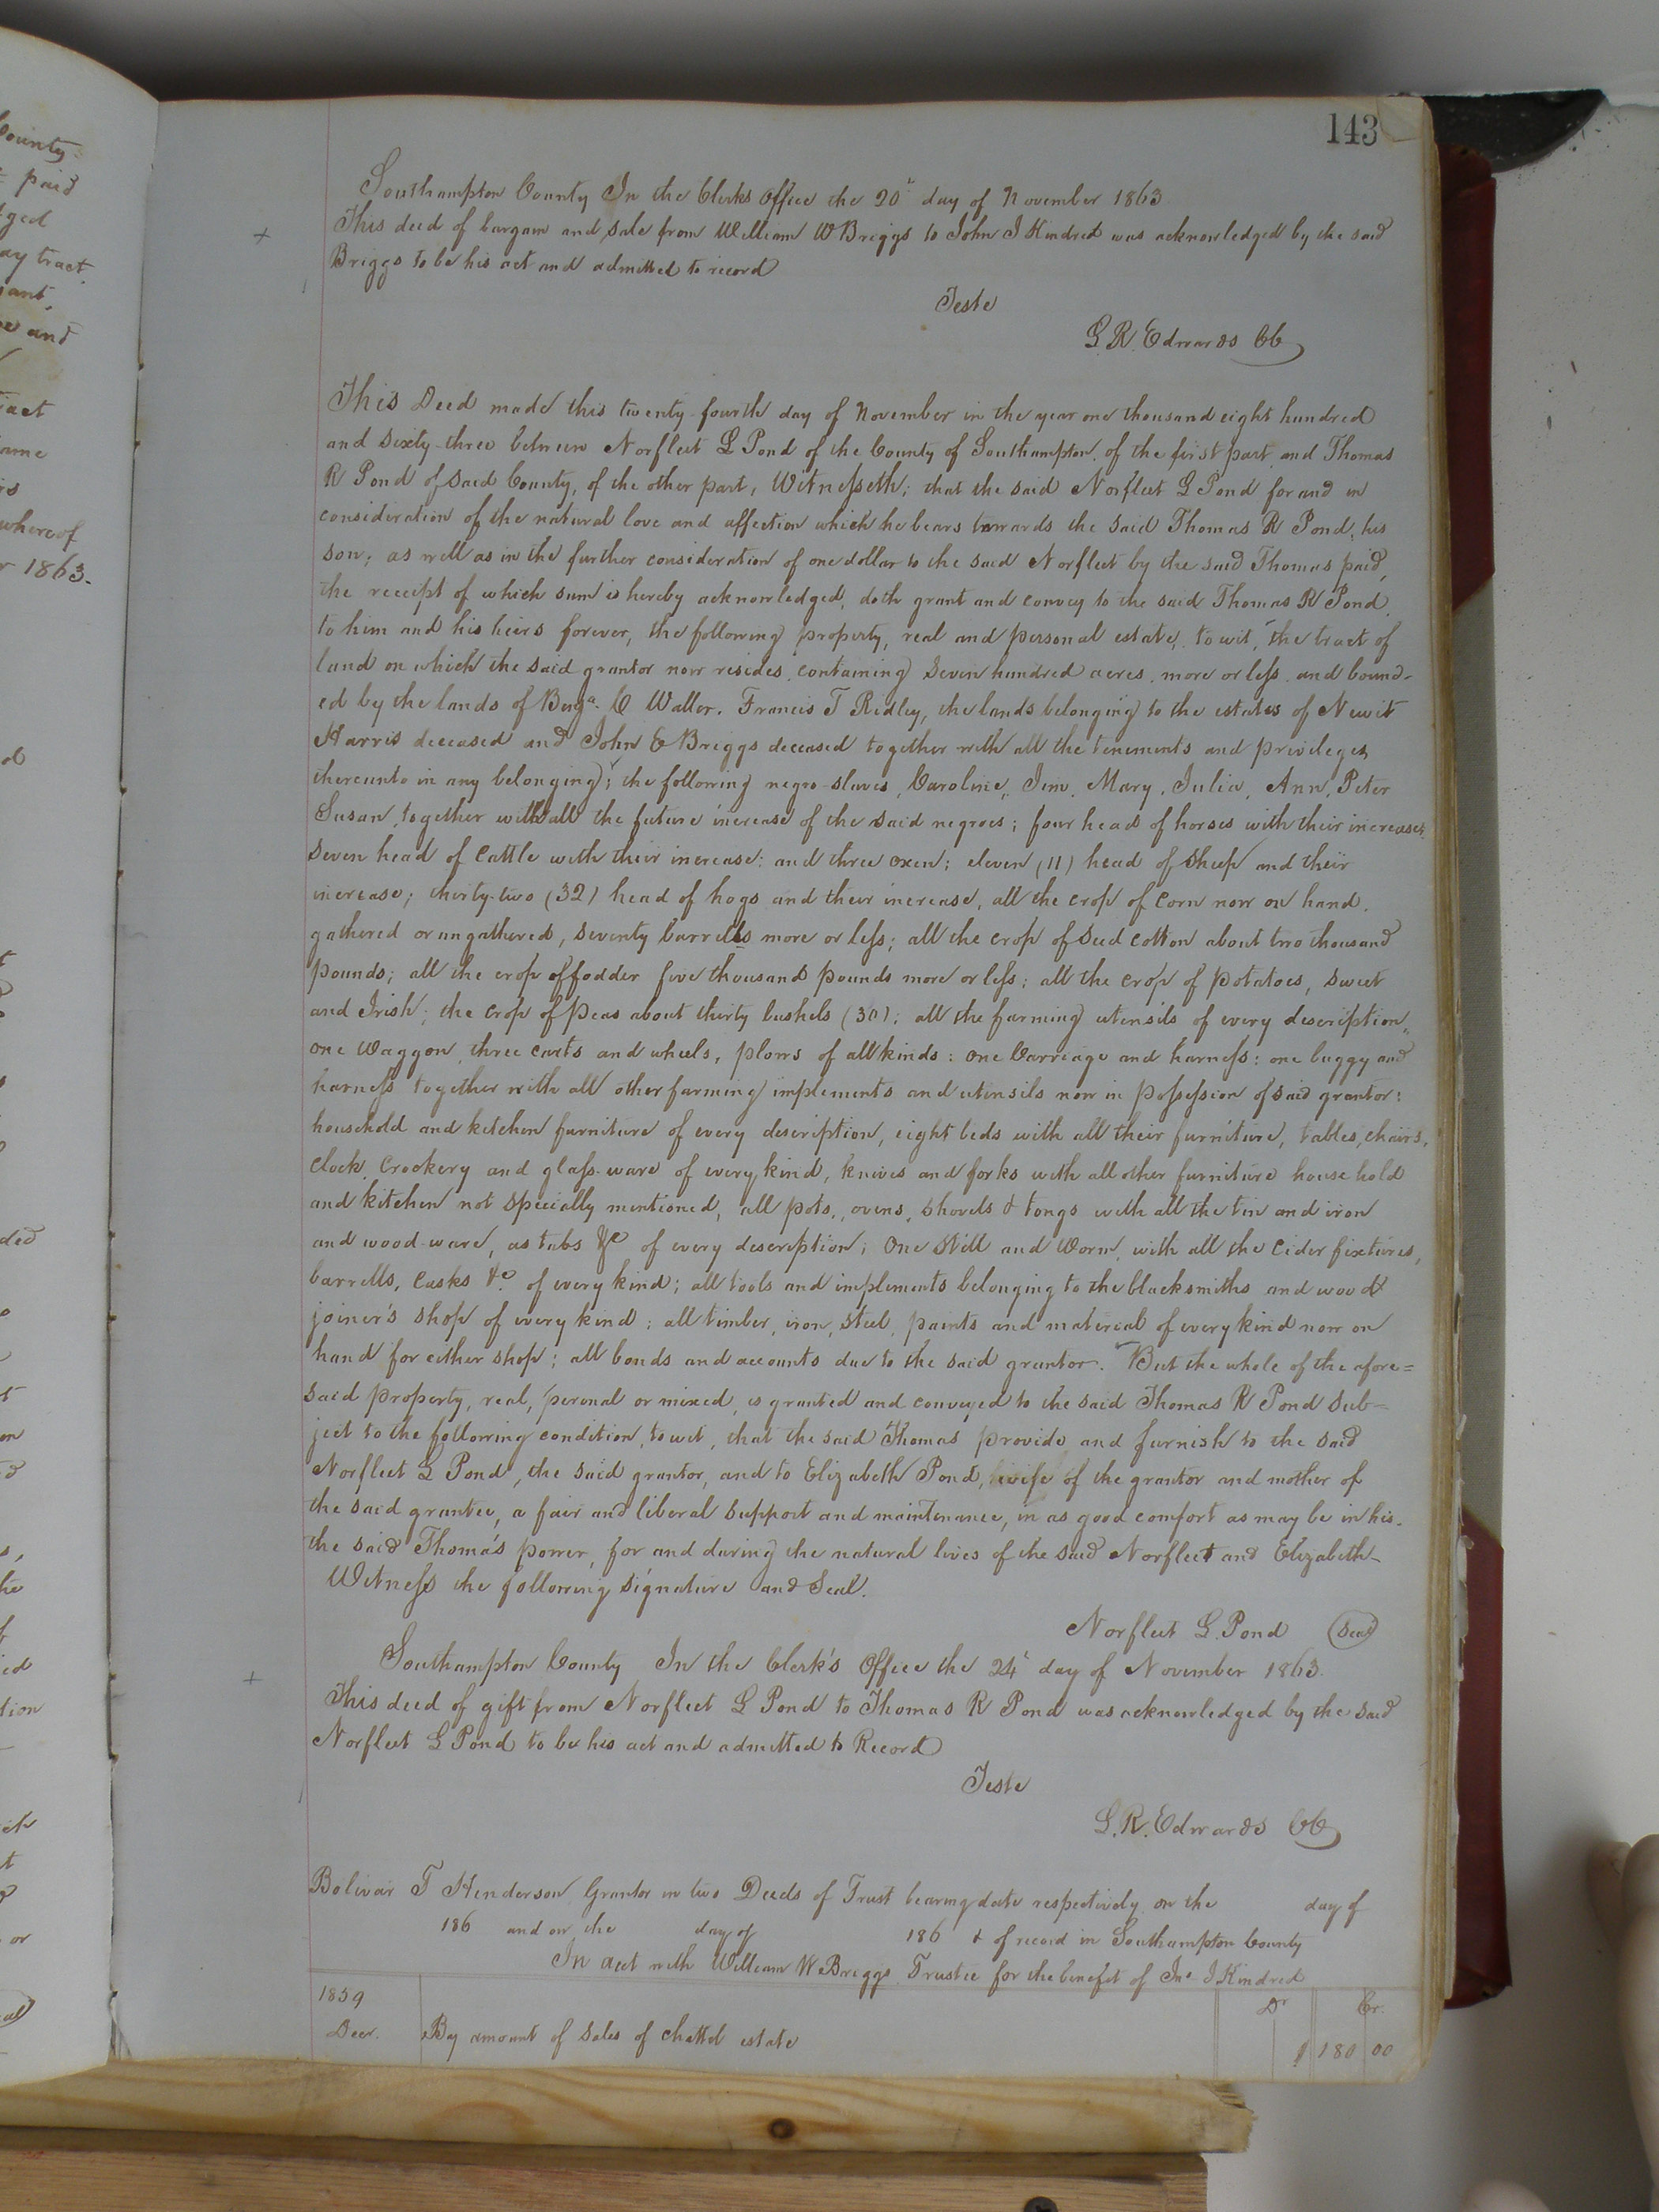 County
paid
ged
ay tract
ant
and
act
ame
whereof
1863.
ded
tion
or
143
Southampton County In the Clerks Office the 20" day of November 1863
This deed of bargain and sale from William W Briggs to John J Kindred was acknowledged by the said
Briggs to be his act and admitted to record
Teste
L. R. Edwards CC
This Deed made this twenty-fourth day of November in the year one thousand eight hundred
and sixty-three between Norfleet L Pond of the County of Southampton, of the first part and Thomas
R Pond of said County, of the other part, Witnesseth; that the said Norfleet L Pond for and in
consideration of the natural love and affection which he bears towards the said Thomas R Pond, his
son; as well as in the further consideration of one dollar to the said Norfleet by the said Thomas paid,
the receipt of which sum is hereby acknowledged, doth grant and convey to the said Thomas R Pond,
to him and his heirs forever, the following property, real and personal estate, to wit, the tract of
land on which the said grantor now resides, containing seven hundred acres, more or less, and bound-
ed by the lands of Benja. C Waller. Francis T Ridley, the lands belonging to the estates of Newit
Harris deceased and John E Briggs deceased together with all the tenements and privileges
thereunto in any belonging; the following negro slaves, Caroline, Jim, Mary, Julia, Ann, Peter
Susan, together with all the future increase of the said negroes; four head of horses with their increase;
seven head of cattle with their increase: and three oxen; eleven (11) head of sheep and their
increase; thirty-two (32) head of hogs and their increase, all the crop of corn now on hand,
gathered or ungathered, seventy barrells more or less; all the crop of seed cotton about two thousand
pounds; all the crop of fodder five thousand pounds more or less; all the crop of potatoes, sweet
and Irish; the crop of peas about thirty bushels (30); all the farming utensils of every description,
one Waggon, three carts and wheels, plows of all kinds: one Carriage and harness: one buggy and
harness together with all other farming implements and utensils now in possession of said grantor:
household and kitchen furniture of every description, eight beds with all their furniture, tables, chairs,
clock, crockery and glass-ware of every kind, knives and forks with all other furniture house hold
and kitchen not specially mentioned, all pots, ovens, shovels & tongs with all the tin and iron
and wood-ware, as tubs &c of every description; One Still and Worm, with all the cider fixtures,
barrells, casks &c. of every kind; all tools and implements belonging to the blacksmiths and wood
joiner's shop of every kind; all timber, iron, steel, paints and material of every kind now on
hand for either shop; all bonds and accounts due to the said grantor. But the whole of the afore=
said property, real, peronal or mixed, is granted and conveyed to the said Thomas R Pond sub=
ject to the following condition, to wit, that the said Thomas provide and furnish to the said
Norfleet L Pond, the said grantor, and to Elizabeth Pond, wife of the grantor and mother of
the said grantee, a fair and liberal support and maintenance, in as good comfort as may be in his.
the said Thomas power, for and during the natural lives of the said Norfleet and Elizabeth-
Witness the following signature and Seal.
Norfleet L. Pond Seal
Southampton County In the Clerk's Office the 24" day of November 1863.
This deed of gift from Norfleet L Pond to Thomas R Pond was acknowledged by the said
Norfleet L Pond to be his act and admitted to Record
Teste
L. R. Edwards CC
Bolivar T Henderson Grantor in two Deeds of Trust bearing date respectively on the day of
186 and on the day of 186 & of record in Southampton County
In acct with William W Briggs Trustee for the benefit of Jno J Kindred
1859 Dr Cr.
Decr. By amount of sales of chattel estate $ 180 00